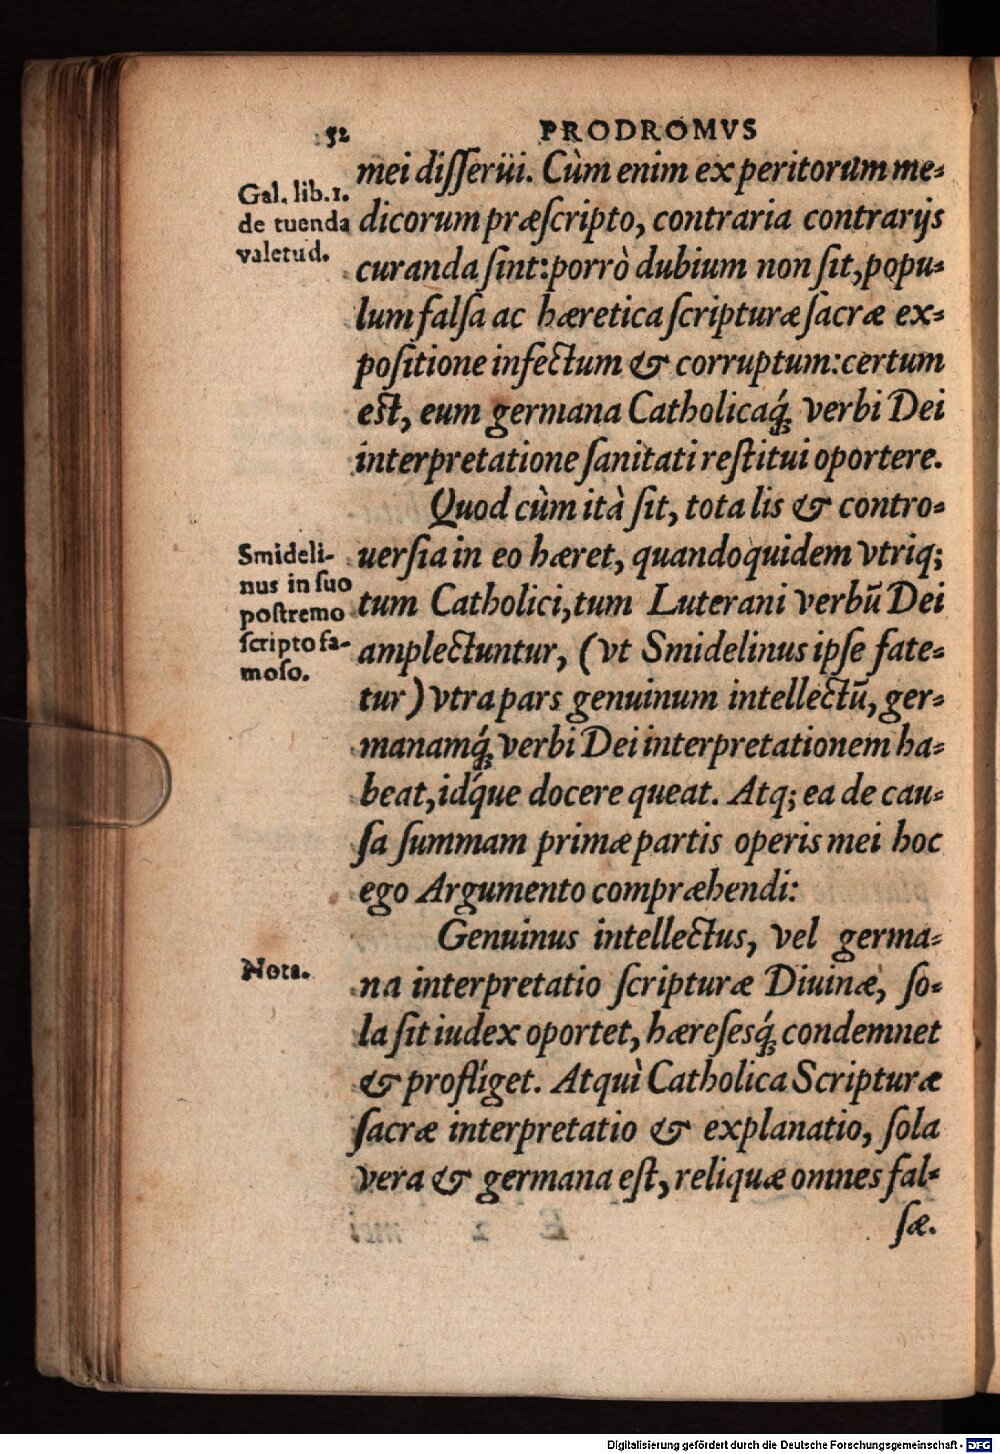 52 PRODROMVS
Gal. lib. 1.
de tuenda
valetud.
mei disserüi. Cùm enim ex peritorum me-
dicorum præscripto, contraria contrarijs
curanda sint: porrò dubium non sit, popu-
lum falsa ac hæretica scripturæ sacræ ex-
positione infectum & corruptum: certum
est, eum germana Catholicaq́ꝫ verbi Dei
interpretatione sanitati restitui oportere.
Quod cùm ità sit, tota lis & contro-
Smideli-
nus in suo
postremo
scripto fa-
moso.
uersia in eo hæret, quandoquidem vtriq;
tum Catholici, tum Luterani verbū Dei
amplectuntur, (vt Smidelinus ipse fate-
tur) vtra pars genuinum intellectū, ger-
manamq́ꝫ verbi Dei interpretationem ha-
beat, idq́ue docere queat. Atq; ea de cau-
sa summam primæ partis operis mei hoc
ego Argumento compræhendi:
Genuinus intellectus, vel germa-
Nota.
na interpretatio scripturæ Diuinæ, so-
la sit iudex oportet, hæresesq́ꝫ condemnet
& profliget. Atquì Catholica Scripturæ
sacræ interpretatio & explanatio, sola
vera & germana est, reliquæ omnes fal-
sæ.
Digitalisierung gefördert durch die Deutsche Forschungsgemeinschaft - DFG